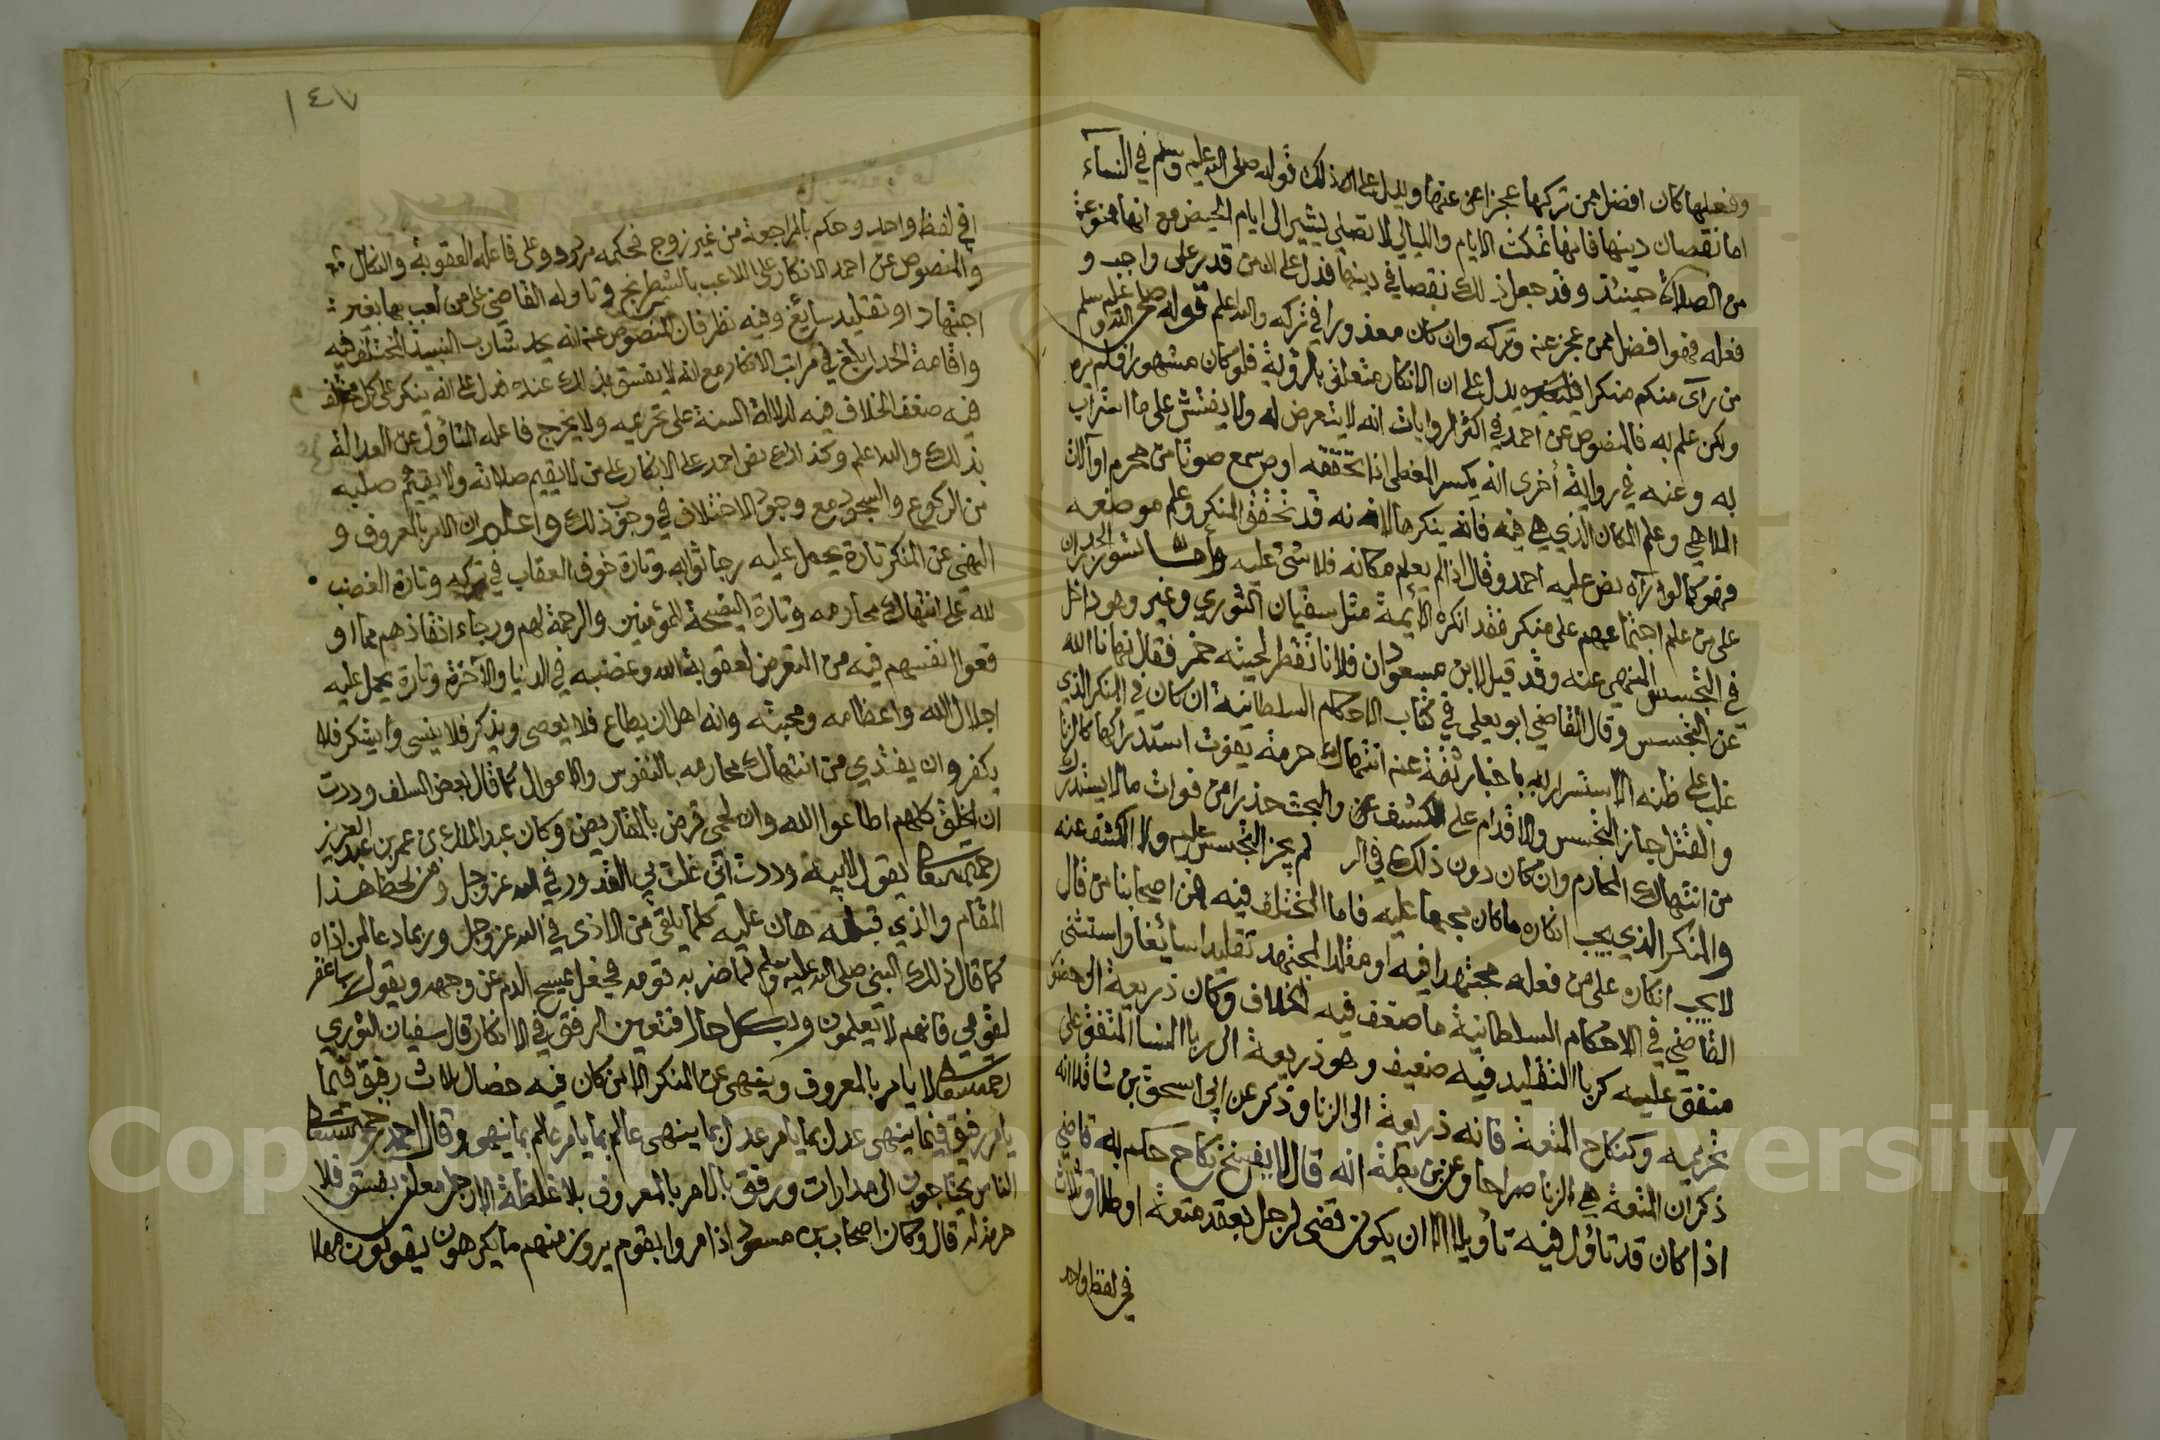 وفعلها كان افضل ممن تركها عجزا عنها ويدل على ذلك قوله صلى الله عليه وسلم في النساء
اما نقصان دينها فانها تمكث الايام والليالي لا تصلي يشير الى ايام الحيض مع انها ممنوعة
من الصلاة حينئذ وقد جعل ذلك نقصا في دينها فدل على ان من قدر على واجب و
فعله فهو افضل ممن عجز عنه وتركه وان كان معذورا في تركه والله اعلم قوله صلى الله عليه وسلم
من رآى منكم منكرا فليغيره يدل على ان الانكار متعلق بالرؤية فلو كان مشهورا فلم يره
ولكن علم به فالمنصوص عن احمد في اكثر الروايات انه لا يتعرض له ولا يفتش على ما استراب
به وعنه في رواية أخرى انه يكسر المغطى اذا تحققه او من سمع صوتا من محرم او آلات
الملاهي وعلم المكان الذي هي فيه فانه ينكرها لانه قد تحقق المنكر وعلم موضعه
فهو كما لو رآه نص عليه احمد وقال اذا لم يعلم مكانه فلا شئ عليه وأما تسور الجدران
على من علم اجتماعهم على منكر فقد انكره الائمة مثل سفيان الثوري وغيره وهو داخل
في التجسس المنهي عنه وقد قيل لابن مسعود ان فلانا تقطر لحيته خمر فقال نهانا الله
عن التجسس وقال القاضي ابو يعلى في كتاب الاحكام السلطانية ان كان في المنكر الذي
غلب على ظنه الاستسرار به باخبار ثقة عنه انتهاك حرمة يفوت استدراكها كالزنا
والقتل جاز التجسس والاقدام على الكشف والبحث حذرا من فوات ما لا يستدرك
من انتهاك المحارم وان كان دون ذلك في الر لم يجز التجسس عليه ولا الكشف عنه
والمنكر الذي يجب انكاره ما كان مجمعا عليه فاما المختلف فيه فمن اصحابنا من قال
لا يجب انكاره على من فعله مجتهدا فيه او مقلدا لمجتهد تقليدا سائغا واستثنى
القاضي في الاحكام السلطانية ما ضعف فيه الخلاف وكان ذريعة الى محظور
متفق عليه كربا التقليد فيه ضعيف وهو ذريعة الى ربا النسا المتفق على
تحريمه وكنكاح المتعة فانه ذريعة الى الزنا وذكر عن ابي اسحق بن شاقلا انه
ذكر ان المتعة هي الزنا صراحا وعن بن بطة انه قال لا يفسخ نكاح حكم به قاضي
اذا كان قد تاؤل فيه تأويلا الا ان يكون قضى لرجل بعقد متعة او طلاق ثلاث
في لفظ واحد
١٤٧
في لفظ واحد وحكم بالمراجعة من غير زوج فحكمه مردود وعلى فاعله العقوبة والنكال
والمنصوص عن احمد الانكار على اللاعب بالشطرنج وتاوله القاضي على من لعب بها بغير
اجتهاد او تقليد سايغ وفيه نظر فان المنصوص عنه انه يحد شارب النبيذ المختلف فيه
واقامة الحد ابلغ في مراتب الانكار مع انه لا يفسق بذلك عنده فدل على انه ينكر على كل مختلف
فيه ضعف الخلاف فيه لدلالة السنة على تحريمه ولا يخرج فاعله المتأول عن العدالة
بذلك والله اعلم وكذلك نص احمد على الانكار على من لا يقيم صلاته ولا يقيم صلبه
من الركوع والسجود مع وجود الاختلاف في وجوب ذلك واعلم ان الامر بالمعروف و
النهي عن المنكر تارة يحمل عليه رجا ثوابه وتارة خوف العقاب في تركه وتارة الغضب
لله على انتهاك محارمه وتارة النصيحة للمؤمنين والرحمة لهم ورجاء انقاذهم مما او
قعوا انفسهم فيه من التعرض لعقوبة الله وغضبه في الدنيا والآخرة وتارة يحمل عليه
اجلال الله واعظامه ومحبته وانه اهل ان يطاع فلا يعصى ويذكر فلا ينسى وأن يشكر فلا
يكفر وان يفتدي من انتهاك محارمه بالنفوس والاموال كما قال بعض السلف وددت
ان الخلق كلهم اطاعوا الله وان لحمي قرض بالمقاريض وكان عبد الملك بن عمر بن عبد العزيز
رحمهما الله تعالى يقول لابيه وددت اني غلت بي القدور في الله عز وجل ومن لحظ هذا
المقام والذي قبله هان عليه كلما يلقى من الاذى في الله عز وجل وربما دعا لمن اذاه
كما قال ذلك النبي صلى الله عليه وسلم لما ضربه قومه فجعل يمسح الدم عن وجهه ويقول رب اغفر
لقومي فانهم لا يعلمون وبكل حال فتعين الرفق في الانكار قال سفيان الثوري
رحمه الله تعالى لا يامر بالمعروف وينهى عن المنكر الا من كان فيه خصال ثلاث رفيق فيما
يامر رفيق فيما ينهى عدل بما يامر عدل بما ينهى عالم بما يامر عالم بما ينهى وقال احمد رحمه الله تعالى
الناس يحتاجون الى مدارات ورفق بالامر بالمعروف بلا غلظة الا رجل معلن بفسق فلا
حرمة له قال وكان اصحاب بن مسعود اذا مروا بقوم يرون منهم ما يكرهون يقولون مهلا